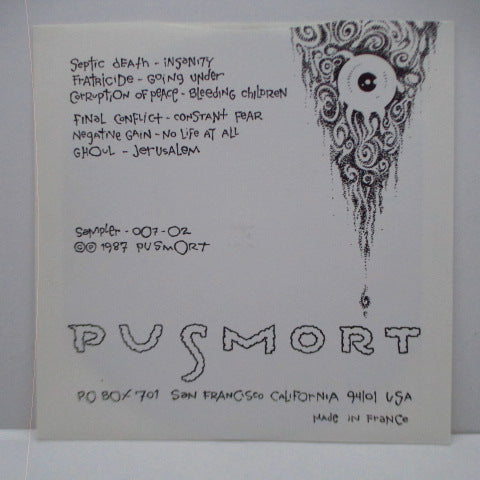 Septic death - insanity
Fratricide - Going under
Corruption of peace - Bleeding children
Final Conflict - constant fear
Negative Gain - No Life at all
Ghoul - Jerusalem
Sampler - 007-02
©℗ 1987 Pusmort
PUSMORT
PO BOX 701 San Francisco California 94101 USA
Made in France